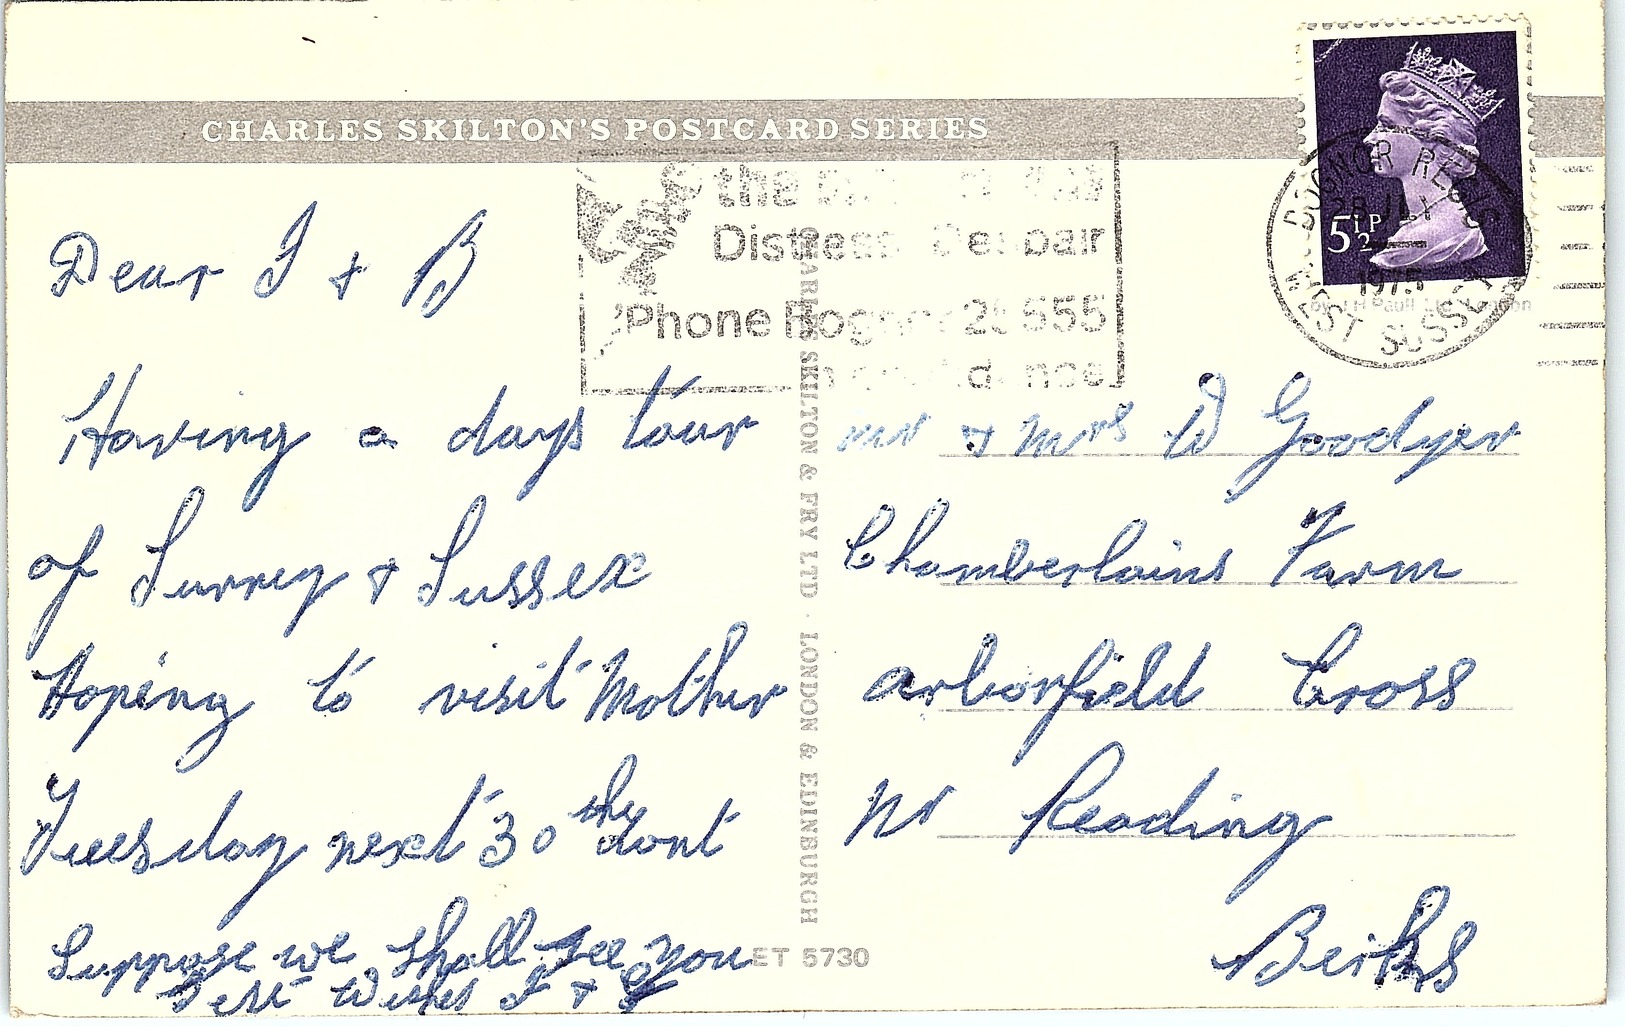 CHARLES SKILTON'S POSTCARD SERIES
the
Distress Despair
'Phone Bognor 25555
BOGNOR REGIS
28 JLY
1975
WEST SUSSEX
5½P
Dear J & B
Having a days tour
of Surrey & Sussex
Hoping to visit Mother
Tuesday next 30th dont
Suppose we shall see you
Best Wishes J &
CHARLES SKILTON & FRY LTD · LONDON & EDINBURGH
ET 5730
mr & mrs W Goodyer
Chamberlains Farm
arborfield Cross
Nr Reading
Berks